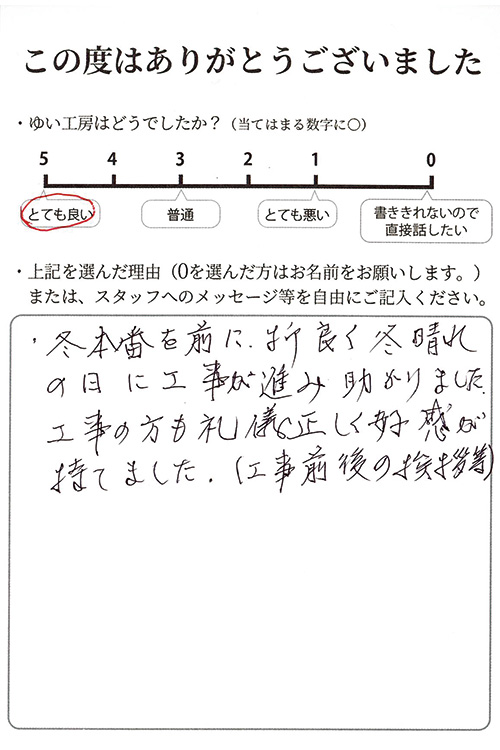 この度はありがとうございました
・ゆい工房はどうでしたか？（当てはまる数字に〇）
5 4 3 2 1 0
とても良い 普通 とても悪い 書ききれないので
直接話したい
・上記を選んだ理由（0を選んだ方はお名前をお願いします。）
または、スタッフへのメッセージ等を自由にご記入ください。
・冬本番を前に、折良く冬晴れ
の日に工事が進み助かりました。
工事の方も礼儀正しく好感が
持てました。（工事前後の挨拶等）